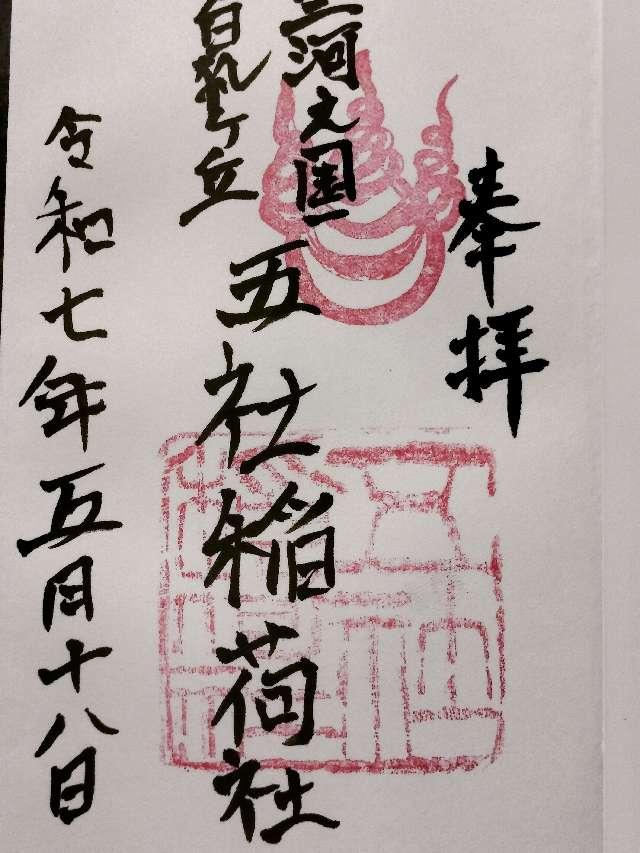 奉拝
三河之国
白狐ヶ丘
五社稲荷社
令和七年五月十八日